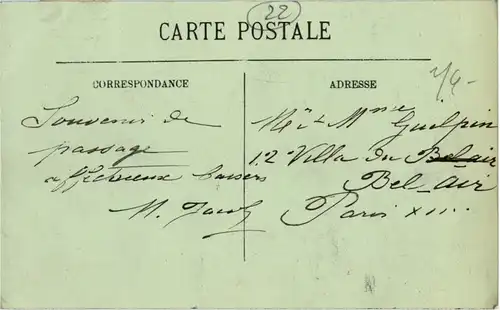 22
CARTE POSTALE
1/4-
CORRESPONDANCE
ADRESSE
Souvenir de
passage
affectueux baisers
M. Jacob
Mr & Mme Guelpin
12 Villa du Bel air
Bel-air
Paris XII